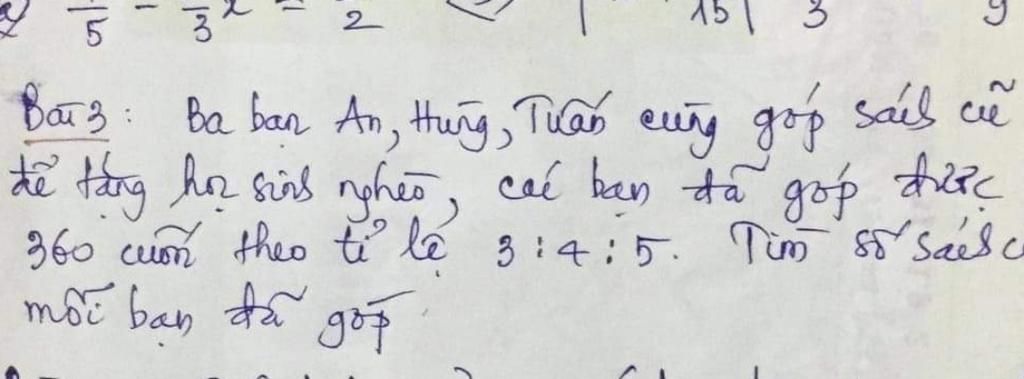 1/5 - 1/3 x = 1/2 15 3 9
Bài 3: Ba bạn An, Hùng, Tuấn cùng góp sách cũ
để tặng học sinh nghèo, các bạn đã góp được
360 cuốn theo tỉ lệ 3:4:5. Tìm số sách c
mỗi bạn đã góp.